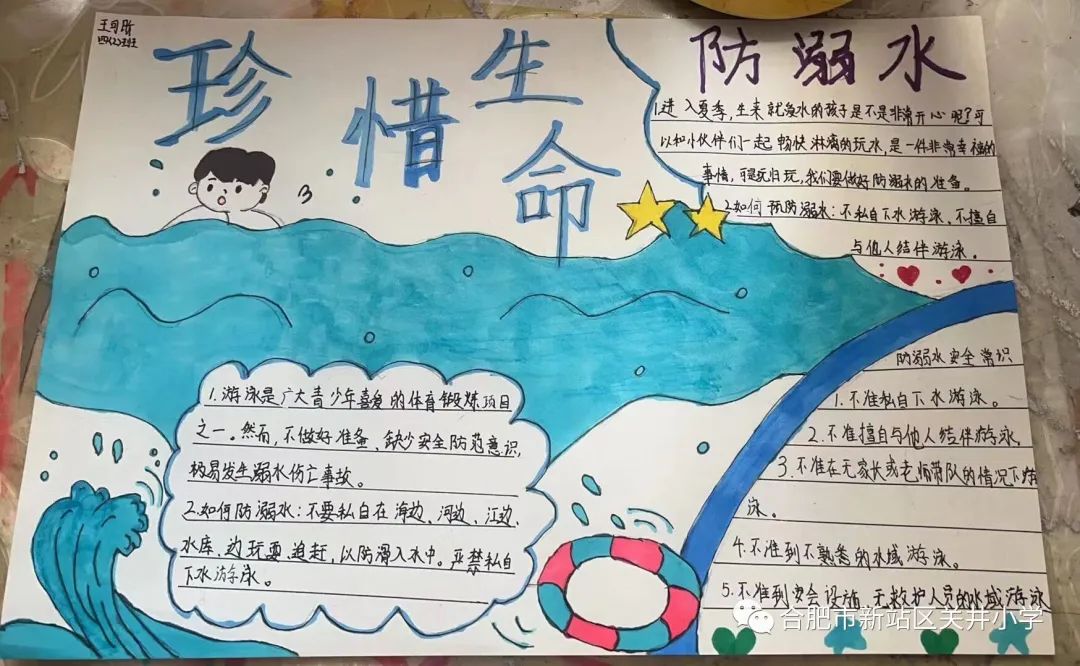 王可昕
四(2)班
珍惜生命
防溺水
1.进入夏季,生来就爱水的孩子是不是非常开心呢?可
以和小伙伴们一起畅快淋漓的玩水,是一件非常幸福的
事情,可玩归玩,我们要做好防溺水的准备。
2.如何预防溺水:不私自下水游泳、不擅自
与他人结伴游泳。
防溺水安全常识
1.不准私自下水游泳。
2.不准擅自与他人结伴游泳。
3.不准在无家长或老师带队的情况下游
泳。
4.不准到不熟悉的水域游泳。
5.不准到安全设施、无救护人员的水域游泳
1.游泳是广大青少年喜爱的体育锻炼项目
之一。然而,不做好准备、缺少安全防范意识,
极易发生溺水伤亡事故。
2.如何防溺水:不要私自在海边、河边、江边、
水库、边玩耍、追赶,以防滑入水中。严禁私自
下水游泳。
合肥市新站区关井小学